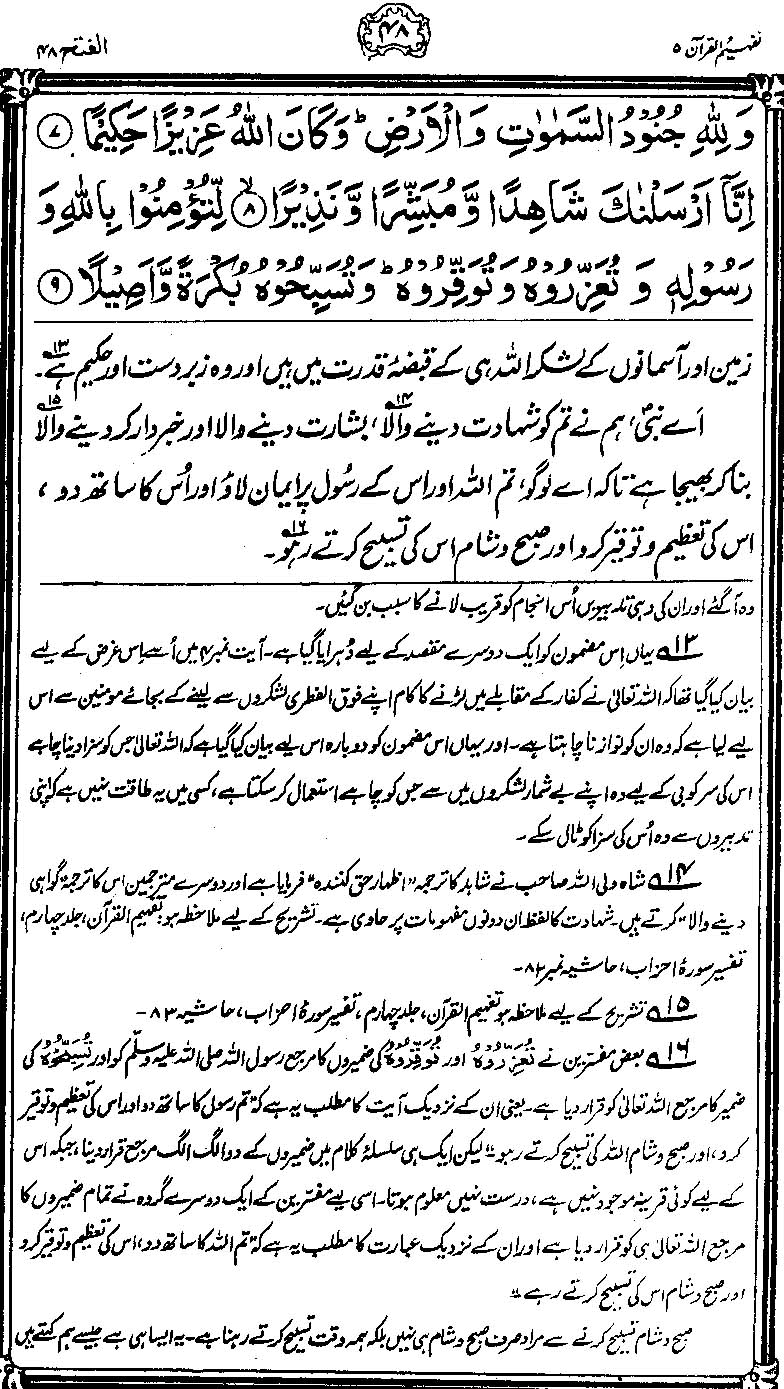 تفہیم القرآن ۵
۴۸
الفتح ۴۸
وَ لِلّٰهِ جُنُوْدُ السَّمٰوٰتِ وَ الْاَرْضِ ؕ وَ كَانَ اللّٰهُ عَزِیْزًا حَكِیْمًا ۷
اِنَّاۤ اَرْسَلْنٰكَ شَاهِدًا وَّ مُبَشِّرًا وَّ نَذِیْرًا ۙ۸ لِّتُؤْمِنُوْا بِاللّٰهِ وَ
رَسُوْلِهٖ وَ تُعَزِّرُوْهُ وَ تُوَقِّرُوْهُ ؕ وَ تُسَبِّحُوْهُ بُكْرَةً وَّ اَصِیْلًا ۹
زمین اور آسمانوں کے لشکر اللہ ہی کے قبضۂ قدرت میں ہیں اور وہ زبردست اور حکیم ہے۱۳۔
اَے نبیؐ، ہم نے تم کو شہادت دینے والا۱۴، بشارت دینے والا اور خبردار کر دینے والا۱۵
بنا کر بھیجا ہے تاکہ اے لوگو، تم اللہ اور اس کے رسُول پر ایمان لاؤ اور اُس کا ساتھ دو،
اس کی تعظیم و توقیر کرو اور صبح و شام اس کی تسبیح کرتے رہو۱۶۔
وہ آگئے اور ان کی وہی تدبیریں اُس انجام کو قریب لانے کا سبب بن گئیں۔
۱۳ یہاں اِس مضمون کو ایک دوسرے مقصد کے لیے دُہرایا گیا ہے۔ آیت نمبر ۴ میں اُسے اِس غرض کے لیے
بیان کیا گیا تھا کہ اللہ تعالیٰ نے کفار کے مقابلے میں لڑنے کا کام اپنے فوق الفطری لشکروں سے لینے کے بجائے مومنین سے اس
لیے لیا ہے کہ وہ ان کو نوازنا چاہتا ہے۔ اور یہاں اس مضمون کو دوبارہ اس لیے بیان کیا گیا ہے کہ اللہ تعالیٰ جس کو سزا دینا چاہے
اس کی سرکوبی کے لیے وہ اپنے بے شمار لشکروں میں سے جس کو چاہے استعمال کر سکتا ہے، کسی میں یہ طاقت نہیں ہے کہ اپنی
تدبیروں سے وہ اُس کی سزا کو ٹال سکے۔
۱۴ شاہ ولی اللہ صاحب نے شاہد کا ترجمہ ”اظہار حق کنندہ“ فرمایا ہے اور دوسرے مترجمین اس کا ترجمہ ”گواہی
دینے والا“ کرتے ہیں۔ شہادت کا لفظ ان دونوں مفہومات پر حاوی ہے۔ تشریح کے لیے ملاحظہ ہو تفہیم القرآن، جلد چہارم،
تفسیر سورۂ احزاب، حاشیہ نمبر ۸۲۔
۱۵ تشریح کے لیے ملاحظہ ہو تفہیم القرآن، جلد چہارم، تفسیر سورۂ احزاب، حاشیہ ۸۳۔
۱۶ بعض مفسّرین نے تُعَزِّرُوْہُ اور تُوَقِّرُوْہُ کی ضمیروں کا مرجع رسول اللہ صلی اللہ علیہ وسلّم کو اور تُسَبِّحُوْہُ کی
ضمیر کا مرجع اللہ تعالیٰ کو قرار دیا ہے۔ یعنی ان کے نزدیک آیت کا مطلب یہ ہے کہ ”تم رسول کا ساتھ دو اور اس کی تعظیم و توقیر
کرو، اور صبح و شام اللہ کی تسبیح کرتے رہو“۔ لیکن ایک ہی سلسلۂ کلام میں ضمیروں کے دو الگ الگ مرجع قرار دینا، جبکہ اس
کے لیے کوئی قرینہ موجود نہیں ہے، درست نہیں معلوم ہوتا۔ اسی لیے مفسّرین کے ایک دوسرے گروہ نے تمام ضمیروں کا
مرجع اللہ تعالیٰ ہی کو قرار دیا ہے اور ان کے نزدیک عبارت کا مطلب یہ ہے کہ ”تم اللہ کا ساتھ دو، اس کی تعظیم و توقیر کرو
اور صبح و شام اس کی تسبیح کرتے رہے“۔
صبح و شام تسبیح کرنے سے مراد صرف صبح و شام ہی نہیں بلکہ ہمہ وقت تسبیح کرتے رہنا ہے۔ یہ ایسا ہی ہے جیسے ہم کہتے ہیں